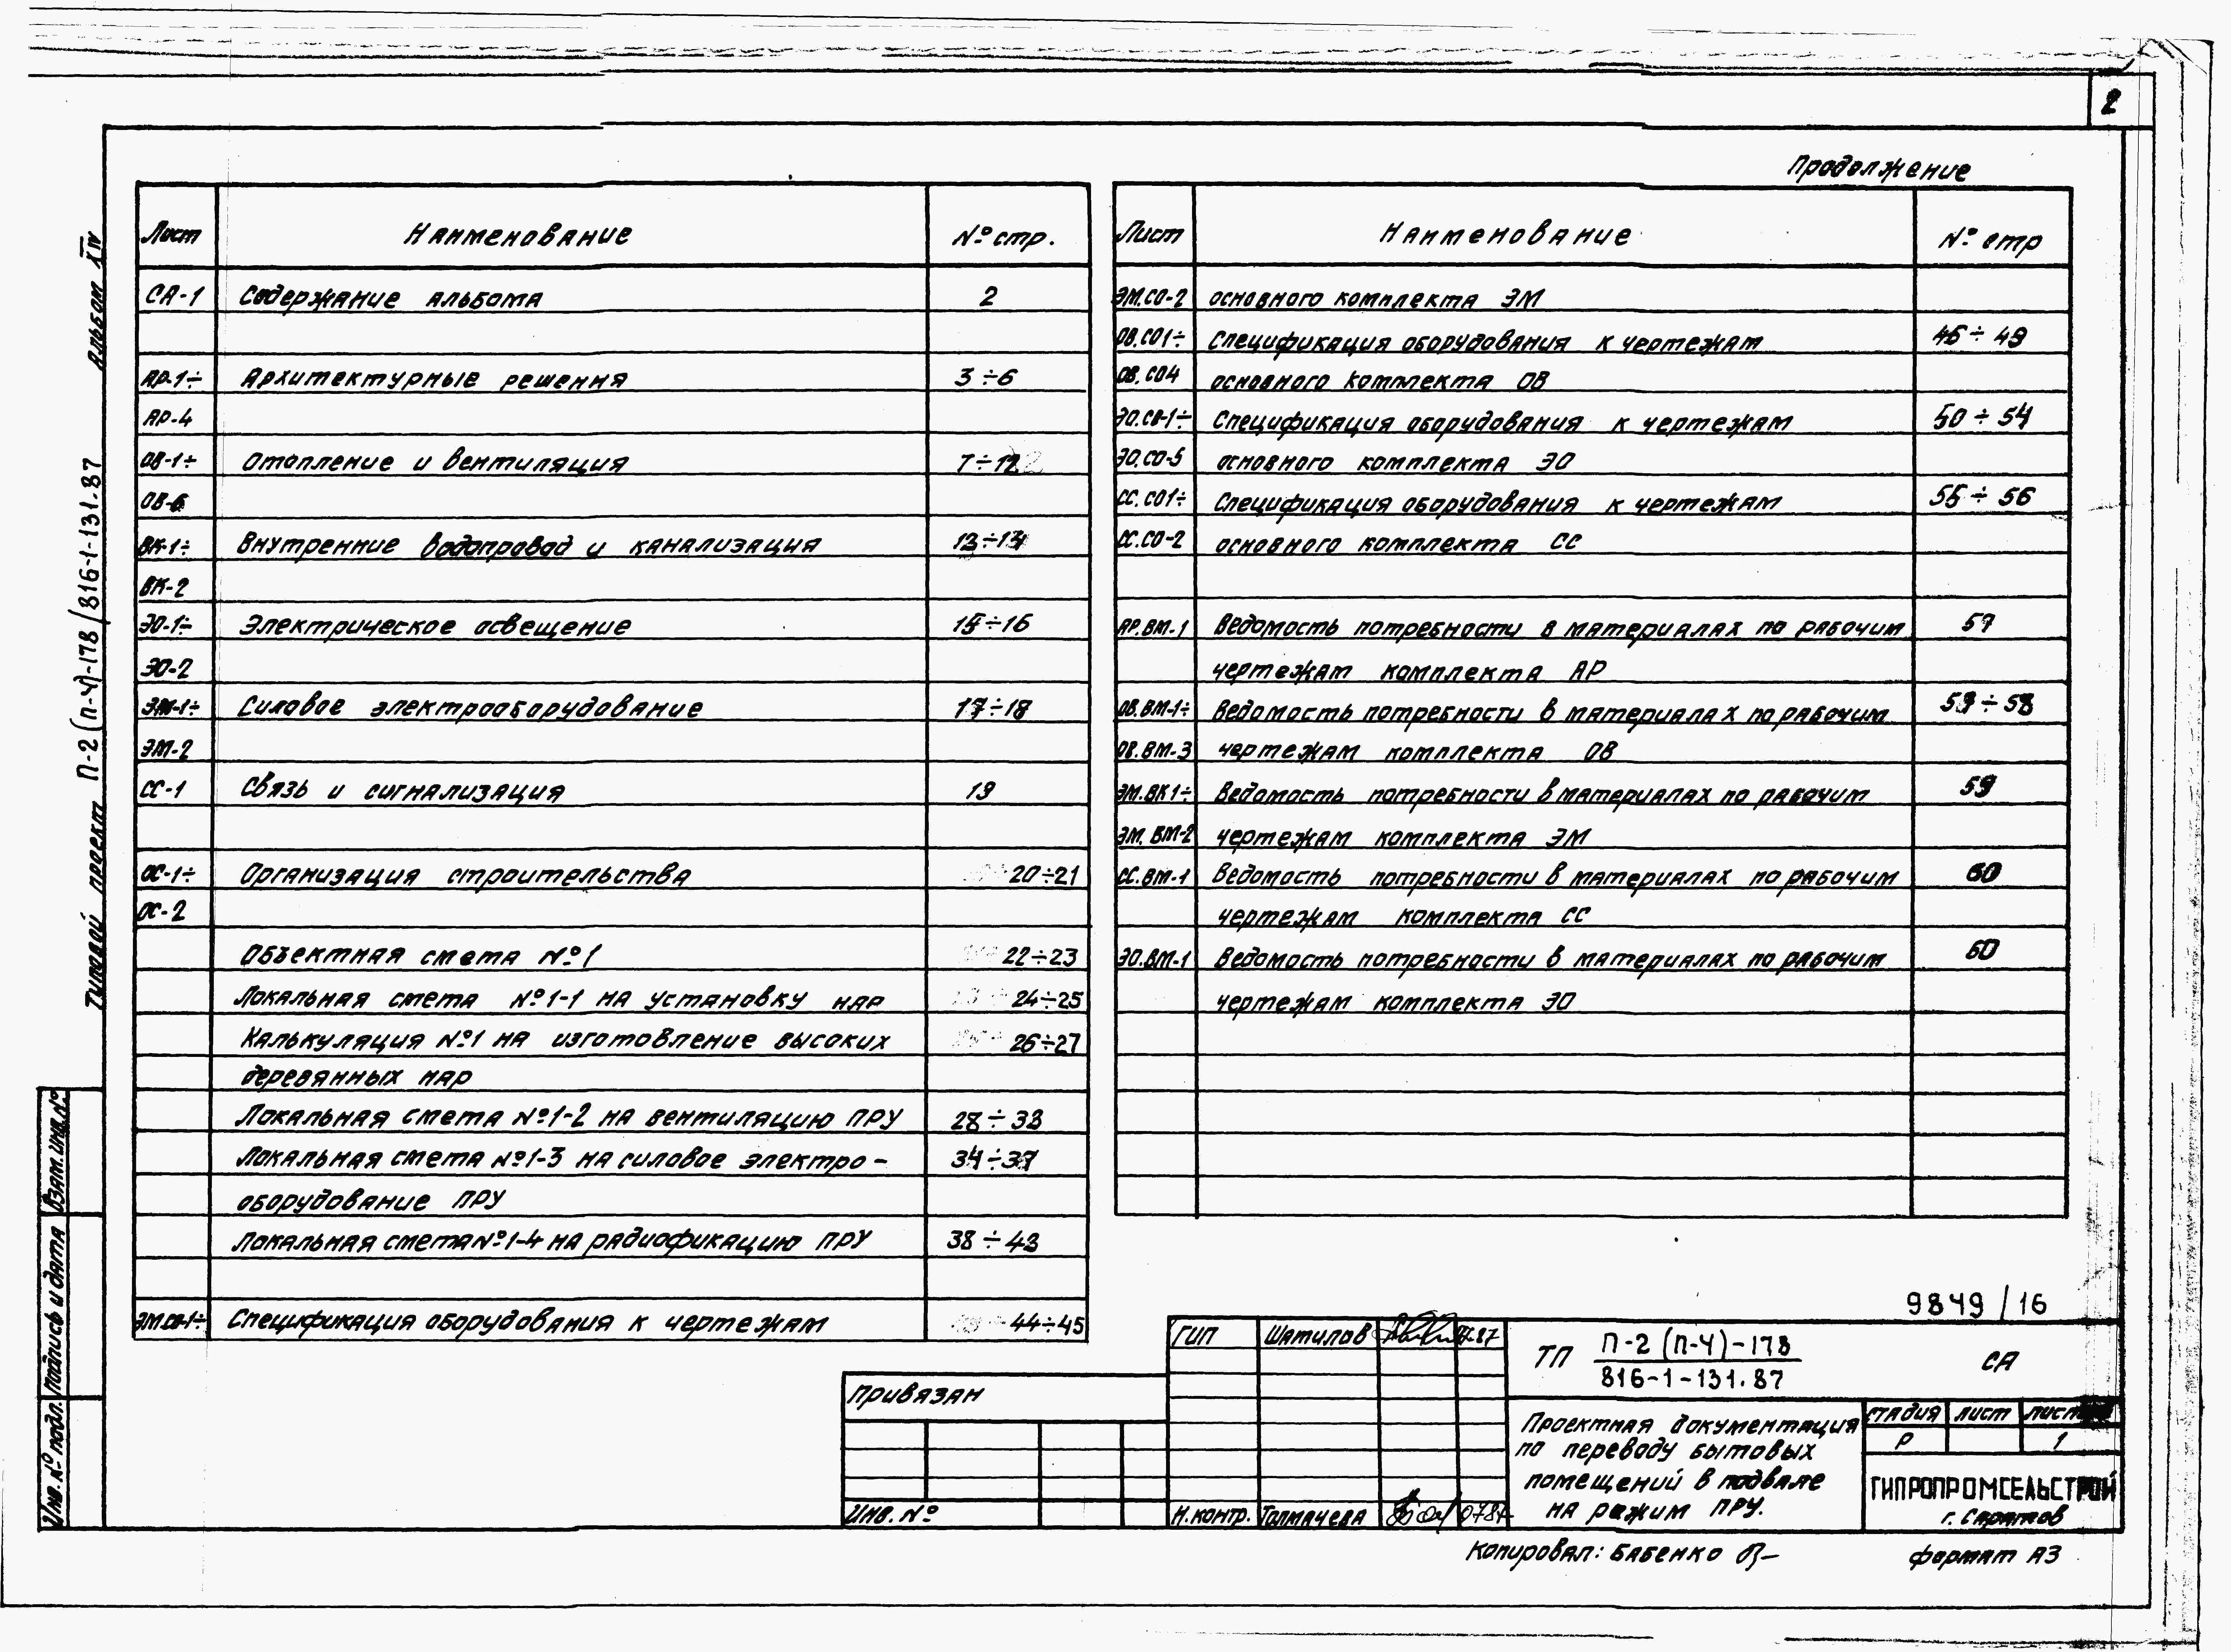 2
Продолжение
Лист Наименование № стр.
СА-1 Содержание альбома 2
АР-1÷ Архитектурные решения 3÷6
АР-4
ОВ-1÷ Отопление и вентиляция 7÷12
ОВ-6
ВК-1÷ Внутренние водопровод и канализация 13÷14
ВК-2
ЭО-1÷ Электрическое освещение 15÷16
ЭО-2
ЭМ-1÷ Силовое электрооборудование 17÷18
ЭМ-2
СС-1 Связь и сигнализация 19
ОС-1÷ Организация строительства 20÷21
ОС-2
Объектная смета №1 22÷23
Локальная смета №1-1 на установку нар 24÷25
Калькуляция №1 на изготовление высоких 26÷27
деревянных нар
Локальная смета №1-2 на вентиляцию ПРУ 28÷33
Локальная смета №1-3 на силовое электро- 34÷37
оборудование ПРУ
Локальная смета №1-4 на радиофикацию ПРУ 38÷43
ЭМ.СО-1÷ Спецификация оборудования к чертежам 44÷45
Лист Наименование № стр
ЭМ.СО-2 основного комплекта ЭМ
ОВ.СО1÷ Спецификация оборудования к чертежам 46÷49
ОВ.СО4 основного комплекта ОВ
ЭО.СО-1÷ Спецификация оборудования к чертежам 50÷54
ЭО.СО-5 основного комплекта ЭО
СС.СО1÷ Спецификация оборудования к чертежам 55÷56
СС.СО-2 основного комплекта СС
АР.ВМ-1 Ведомость потребности в материалах по рабочим 57
чертежам комплекта АР
ОВ.ВМ-1÷ Ведомость потребности в материалах по рабочим
ОВ.ВМ-3 чертежам комплекта ОВ
ЭМ.ВК1÷ Ведомость потребности в материалах по рабочим 59
ЭМ.ВМ-2 чертежам комплекта ЭМ
СС.ВМ-1 Ведомость потребности в материалах по рабочим 60
чертежам комплекта СС
ЭО.ВМ-1 Ведомость потребности в материалах по рабочим 60
чертежам комплекта ЭО
Типовой проект П-2(п-4)-178/816-1-131.87 Альбом XIV
Взам. инв. №
Подпись и дата
Инв. № подл.
9849/16
Привязан
Инв. №
ГИП Шатилов
Н.контр. Толмачева
ТП П-2 (П-4)-178
816-1-131.87
СА
Проектная документация
по переводу бытовых
помещений в подвале
на режим ПРУ.
стадия лист
Р 1
ГИПРОПРОМСЕЛЬСТРОЙ
г. Саратов
Копировал: Бабенко
формат А3